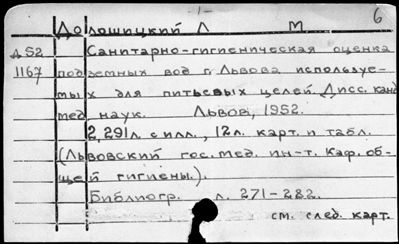 -1- 6
Долошицкий Л М
Д52 Санитарно-гигиеническая оценка
1167 подземных вод г. Львова используе-
мых для питьевых целей. Дисс. канд.
мед. наук. Львов, 1952.
2, 291л. с илл., 12л. карт. и табл.
(Львовский гос. мед. ин-т. Каф. об-
щей гигиены.).
Библиогр. л. 271-282.
см. след. карт.